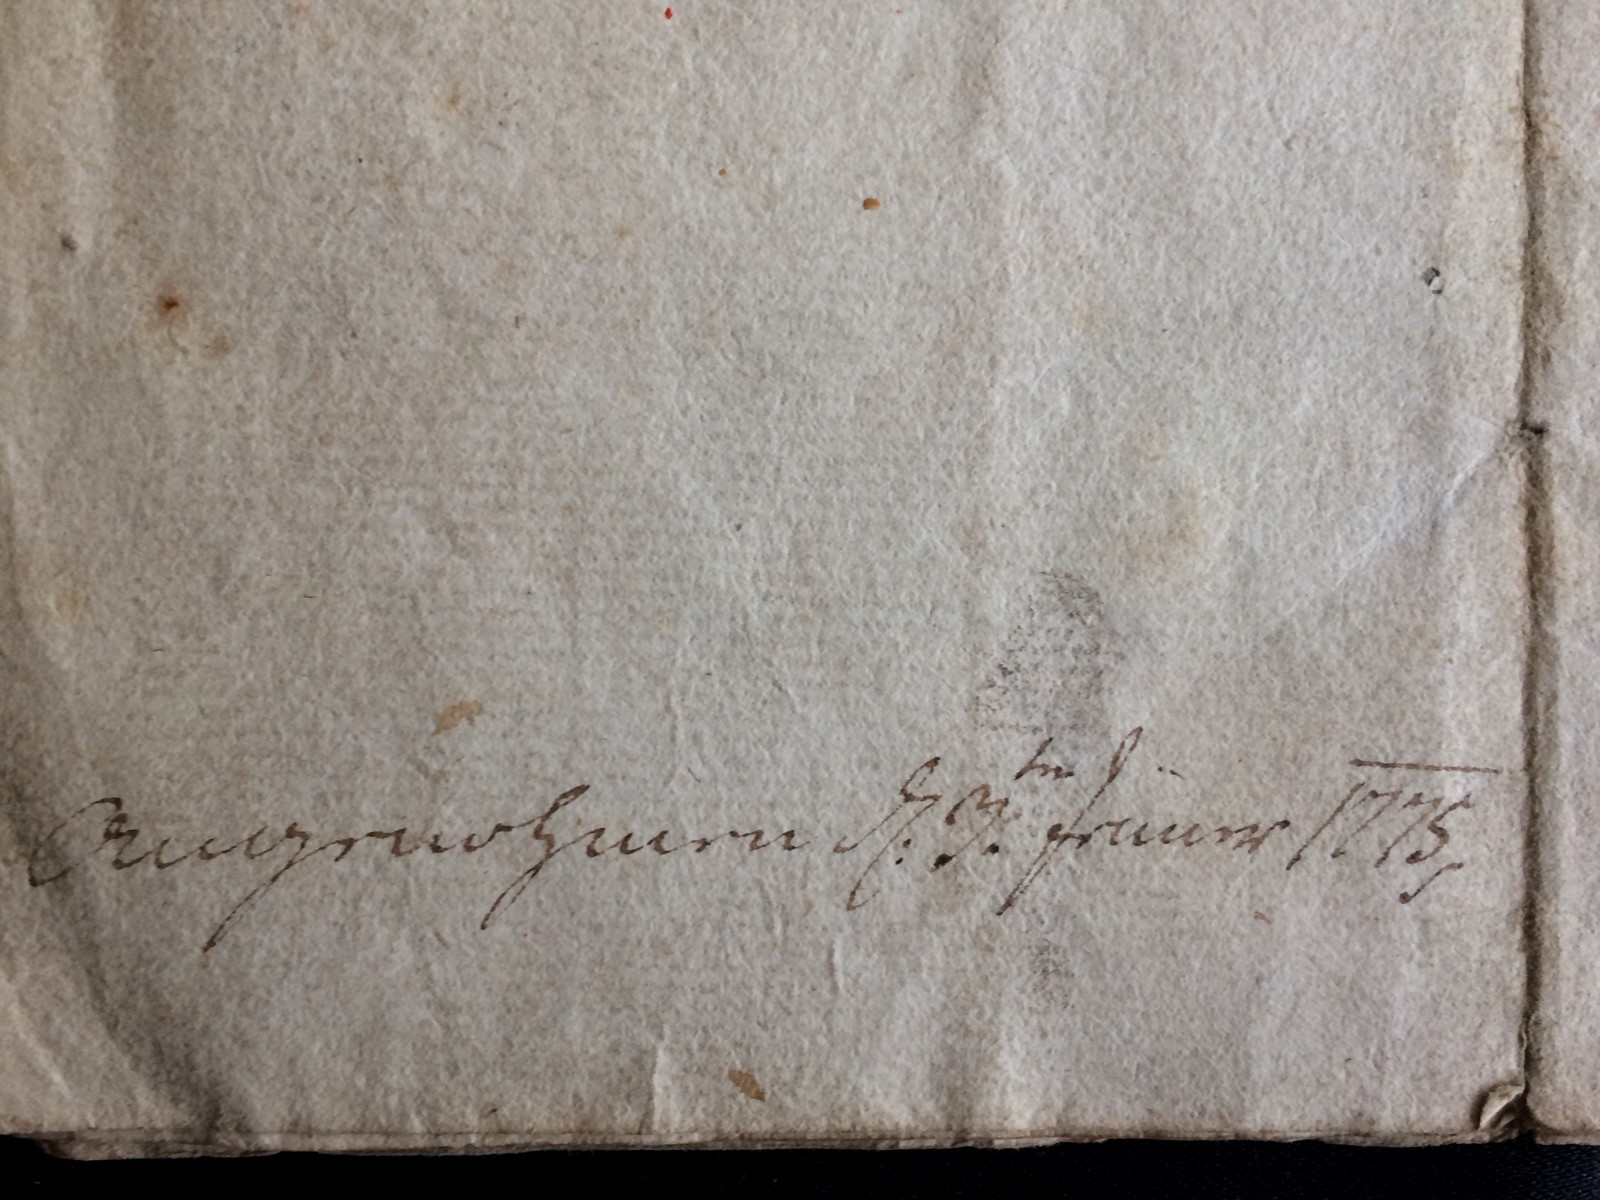 Angenohmen d. 3.ten Jenner 1775